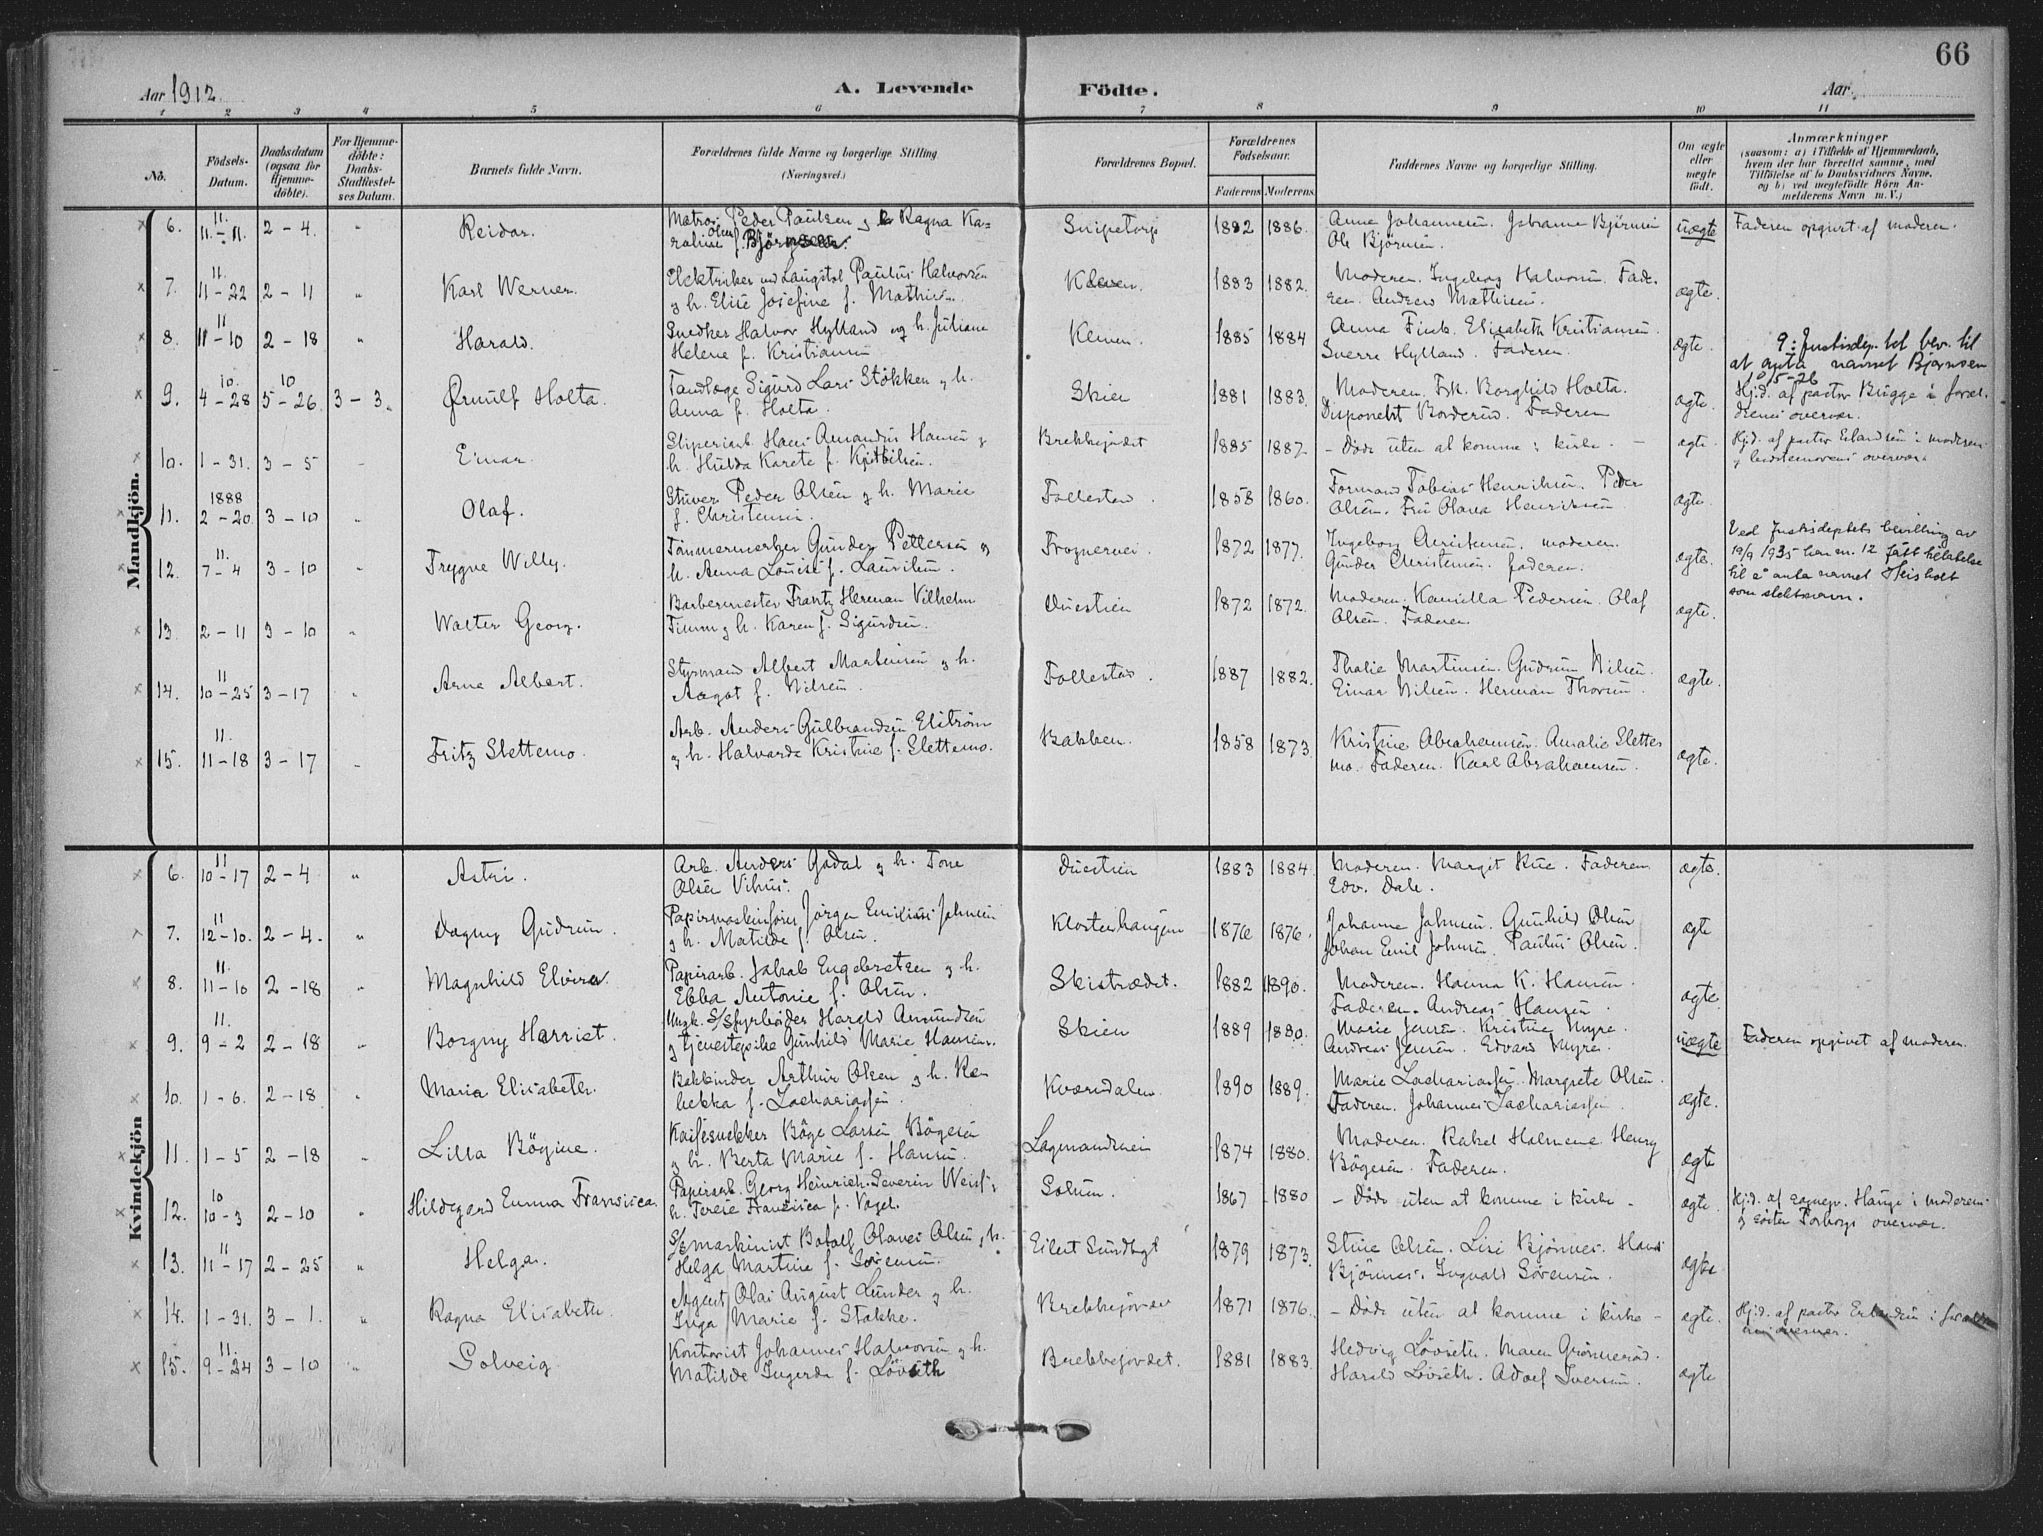 66
Aar 1912.
A. Levende Födte.
Aar
1 2 3 4 5 6 7 8 9 10 11
No.
Födsels-Datum.
Daabsdatum (ogsaa for Hjemme-döbte).
For Hjemme-döbte: Daabs-Stadfæstel-ses Datum.
Barnets fulde Navn.
Forældrenes fulde Navne og borgerlige Stilling
(Næringsvei.)
Forældrenes Bopæl.
Forældrenes Födselsaar.
Faderens Moderens
Faddernes Navne og borgerlige Stilling.
Om ægte eller uægte födt.
Anmærkninger
(saasom: a) i Tilfælde af Hjemmedaab, hvem der har forrettet samme, med Tilföielse af to Daabsvidners Navne, og b) ved uægtefödte Börn An-melderens Navn m. V.)
Mandkjön.
6. 11. 11-11. 2-4. " Reidar. Matros Peder Paulsen og Ragna Ka-
raline Olsen f. Snipetorp 1882 1886. Anna Johannesen. Johanne Björnsen
Ole Björnsen. uægte Faderen opgivet af moderen.
7. 11. 11-22 2-11 " Karl Werner. Elektriker ved Laugstol Paulus Halvorsen
og h. Elise Josefine f. Mathisen. Kleven. 1883 1882. Moderen. Ingeborg Halvorsen. Fade-
ren. Andreas Mathisen. ægte.
8. 11 11-10 2-18 " Harald. Snedker Halvor Hylland og h. Juliane
Helene f. Kristiansen Kleven. 1885 1884 Anna Fink. Elisabeth Kristiansen.
Sverre Hylland. Faderen. ægte.
9: Justisdep. tet bev. til
at anta navnet Bjørnsen
10/5-26
9. 10. 4-28 10 5-26. 3-3. Ørnulf Holta. Tandlæge Sigurd Lars Stökken og h.
Anna f. Holta. Skien 1881 1883. Moderen. Frk. Borghild Holta.
Disponent Borderud. Faderen ægte. Hjd. af pastor Brügge i foræl-
drenes overvær.
10. 1-31. 3-5 - Einar. Sliperiarb. Hans Amandus Hansen og
h. Hulda Karete f. Kjetilsen. Brekkejordet 1885 1887. - Døde uten at komme i kirke. - ægte. Hjd. af pastor Erlandsen i moderen
og bedstemorens overvær.
11. 1888 2-20. 3-10 " Olaf. Stuver Peder Olsen og h. Marie
f. Christensen. Follestad. 1858 1860. Formand Tobias Henriksen. Peder
Olsen. Fru Olava Henriksen ægte.
12. 11. 7-4 3-10 " Trygve Willy. Tömmermerker Gunder Pettersen og
h. Anna Louise f. Lauritsen. Frognervei. 1872 1877. Ingeborg Christensen. moderen.
Gunder Christensen. faderen. ægte. Ved Justisdeptets bevilling av
19/9 1935 har nr. 12 fått tillatelse
til å anta navnet Heisholt
som slektsnavn.
13. 2-11 3-10 " Walter Georg. Barbermester Frantz Herman Vilhelm
Timm og h. Karen f. Sigurdsen. Duestien 1872 1872. Moderen. Kamilla Pedersen. Olaf
Olsen. Faderen. ægte.
14. 11 10-25 3-17 " Arne Albert. Styrmand Albert Martinsen og h.
Aagot f. Nilsen. Follestad. 1887 1882. Thalie Martinsen. Gudrun Nilsen.
Einar Nilsen. Herman Thorsen. ægte.
15. 11. 11-18 3-17 Fritz Slettemo. Arb. Anders Gulbrandsen Elström
og h. Halvarda Kristine f. Slettemo. Bakken. 1858 1873. Kristine Abrahamsen. Amalie Slette-
mo. Faderen. Karl Abrahamsen. ægte.
Kvindekjön
6. 11 10-17 2-4 " Astri. Arb. Anders Gödal og h. Tone
Olsen Vihus. Duestien 1883 1884. Moderen. Margit Rue. Faderen.
Edv. Dale. ægte.
7. 11 12-10. 2-4. " Dagny Gudrun. Papirmaskinförer Jörgen Emilius Johnsen
og h. Matilde f. Olsen. Klosterhaugen 1876 1876. Johanne Johnsen. Gunhild Olsen
Johan Emil Johnsen. Paulus Olsen. ægte
8. 11. 11-10 2-18 " Magnhild Elvira. Papirarb. Jakob Engebretsen og h.
Ebba Antonie f. Olsen. Skistrædet. 1882 1890. Moderen. Hanna K. Hansen.
Faderen. Andreas Hansen. ægte
9. 11. 9-2 2-18 " Borgny Harriet. Ungk. S/Sfyrböder Harald Amundsen
og tjenestepike Gunhild Marie Hansen. Skien 1889 1880. Marie Jensen. Kristine Myre.
Andreas Jensen. Edvard Myre. uægte Faderen opgivet af moderen.
10. 1-6. 2-18 " Maria Elisabeth. Bokbinder Arthur Olsen og h. Re-
bekka f. Zachariassen. Kværndalen. 1890 1889. Marie Zachariassen. Margrete Olsen.
Faderen. Johannes Zachariassen. ægte.
11. 1-5 2-18 " Lilla Bögine. Kaifesnekker Böge Larsen Bögesen
og h. Berta Marie f. Hansen. Lagmandsvei 1874 1880. Moderen. Rakel Halmene. Henry
Bögesen. Faderen. ægte
12. 10 10-3 2-10 " Hildegard Emma Fransisca. Papirarb. Georg Heinrich Severin Weiss og
h. Terese Francisca f. Vogel. Solum. 1867 1880 - Døde uten at komme i kirke - ægte. Hjd. af sognepr. Hauge i moderens
og søster Torborgs overvær.
13. 11 11-17 2-25 " Helga. S/S maskinist Botolf Olaves Olsen og h.
Helga Martine f. Sörensen. Eilert Sundtsgt 1879 1873. Stine Olsen. Lise Bjönnes. Hans
Bjönnes. Ingvald Sörensen. ægte
14. 1-31. 3-1. " Ragna Elisabeth. Agent Olai August Lunder og h.
Inga Marie f. Stakke. Brekkejordet 1871 1876. - Døde uten at komme i kirke - ægte. Hjd. af pastor Erlandsen i foræld-
renes overvær.
15. 11. 9-24 3-10 " Solveig Kontorist Johannes Halvorsen og h.
Matilde Ingerda f. Lövseth Brekkejordet. 1881 1883. Hedvig Lövseth. Maren Grönneröd.
Harald Lövseth. Adolf Iversen. ægte